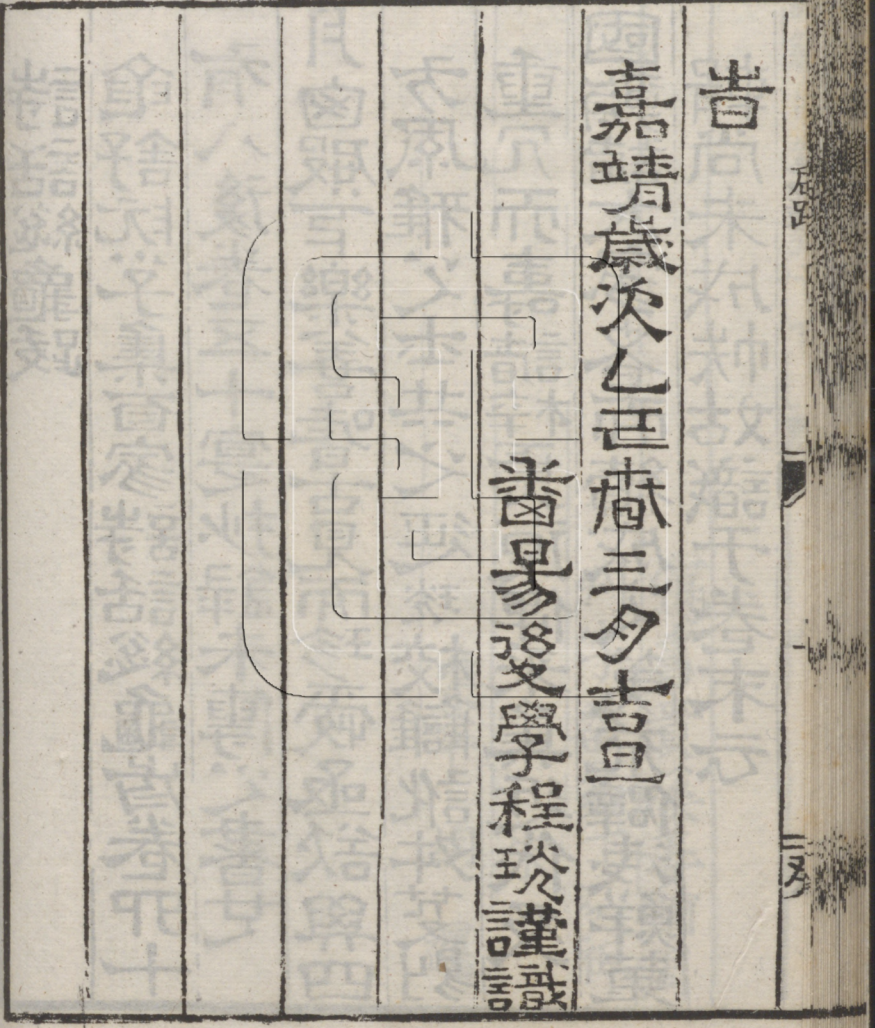 旹
嘉靖歲次乙巳旾三月吉旦
番昜後學程珖謹識